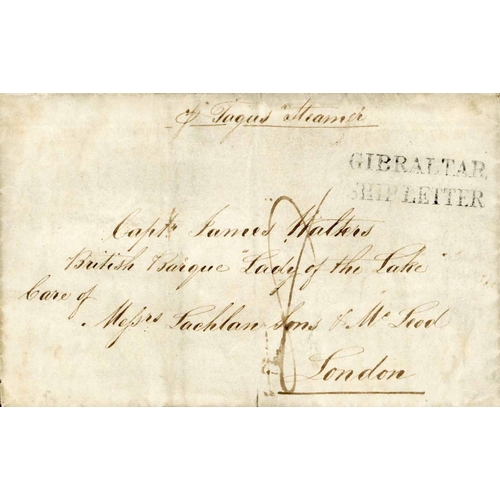 p "Tagus" Steamer
GIBRALTAR
SHIP LETTER
Captn James Walters
British Barque "Lady of the Lake"
Care of
Messrs Lachlan Sons & McLeod
London